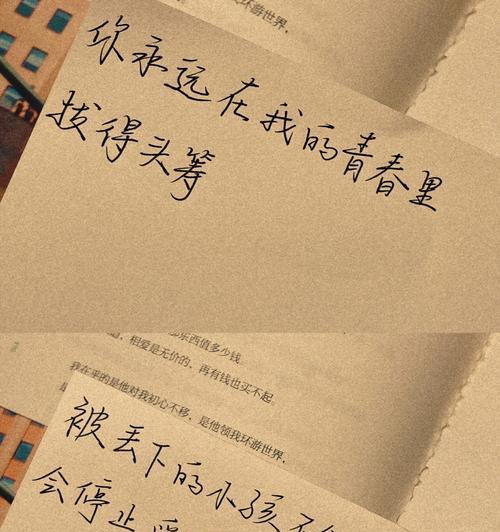 我环游世界，
你永远在我的青春里
拔得头筹
东西值多少钱
相爱是无价的，再有钱也买不起。
我在乎的是他对我初心不移，是他领我环游世界，
被丢下的小孩不
会停止